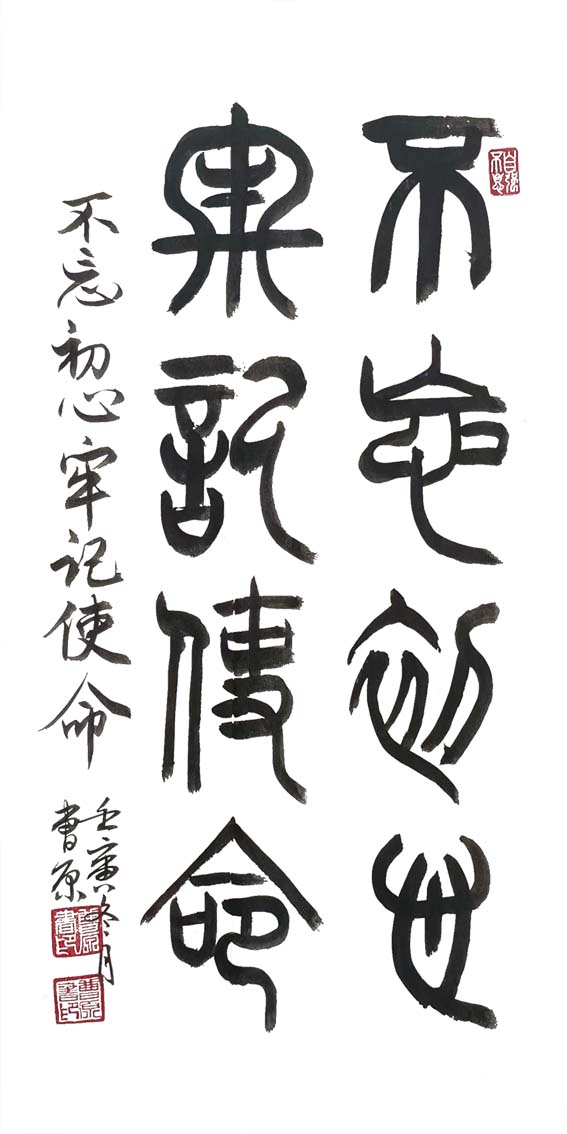 自强不息
不忘初心
牢记使命
不忘初心牢记使命
壬寅冬月
曹原
曹原書印